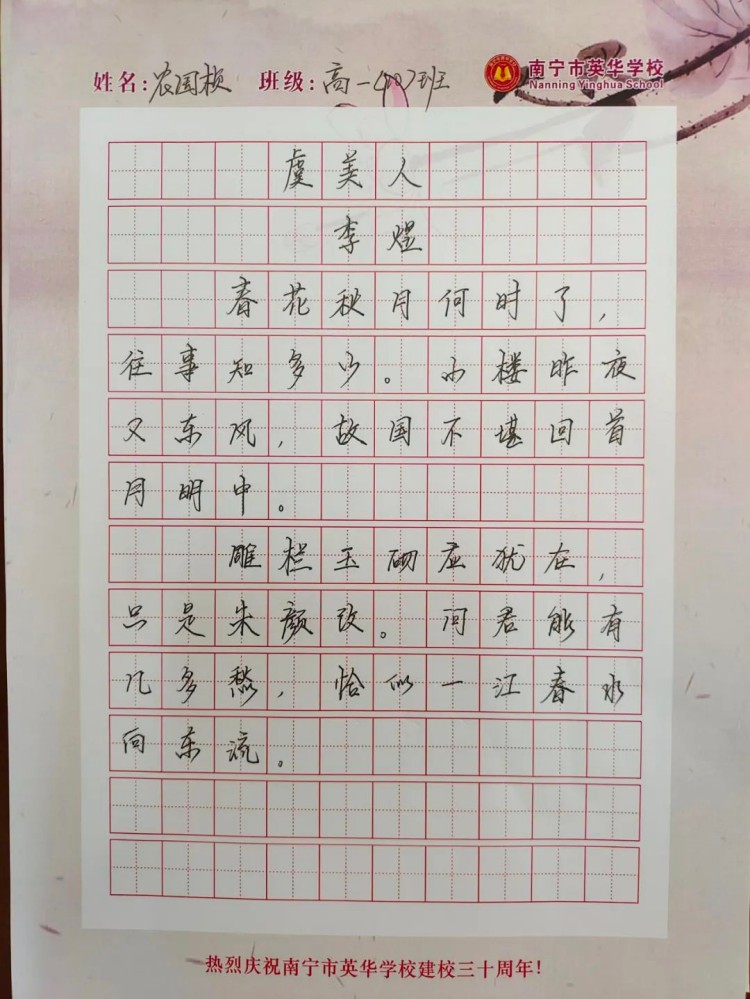 姓名：农国桢 班级：高一(10)班
南宁市英华学校
Nanning Yinghua School
虞美人
李煜
春花秋月何时了，
往事知多少。小楼昨夜
又东风，故国不堪回首
月明中。
雕栏玉砌应犹在，
只是朱颜改。问君能有
几多愁，恰似一江春水
向东流。
热烈庆祝南宁市英华学校建校三十周年！